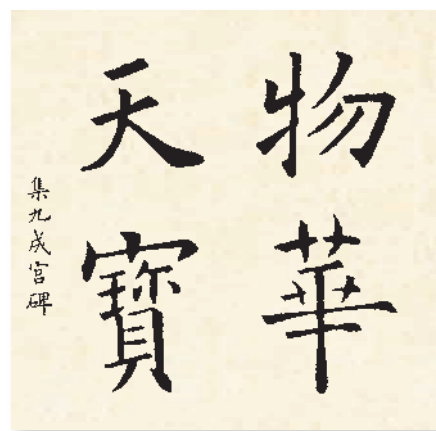 物華
天寶
集九成宮碑